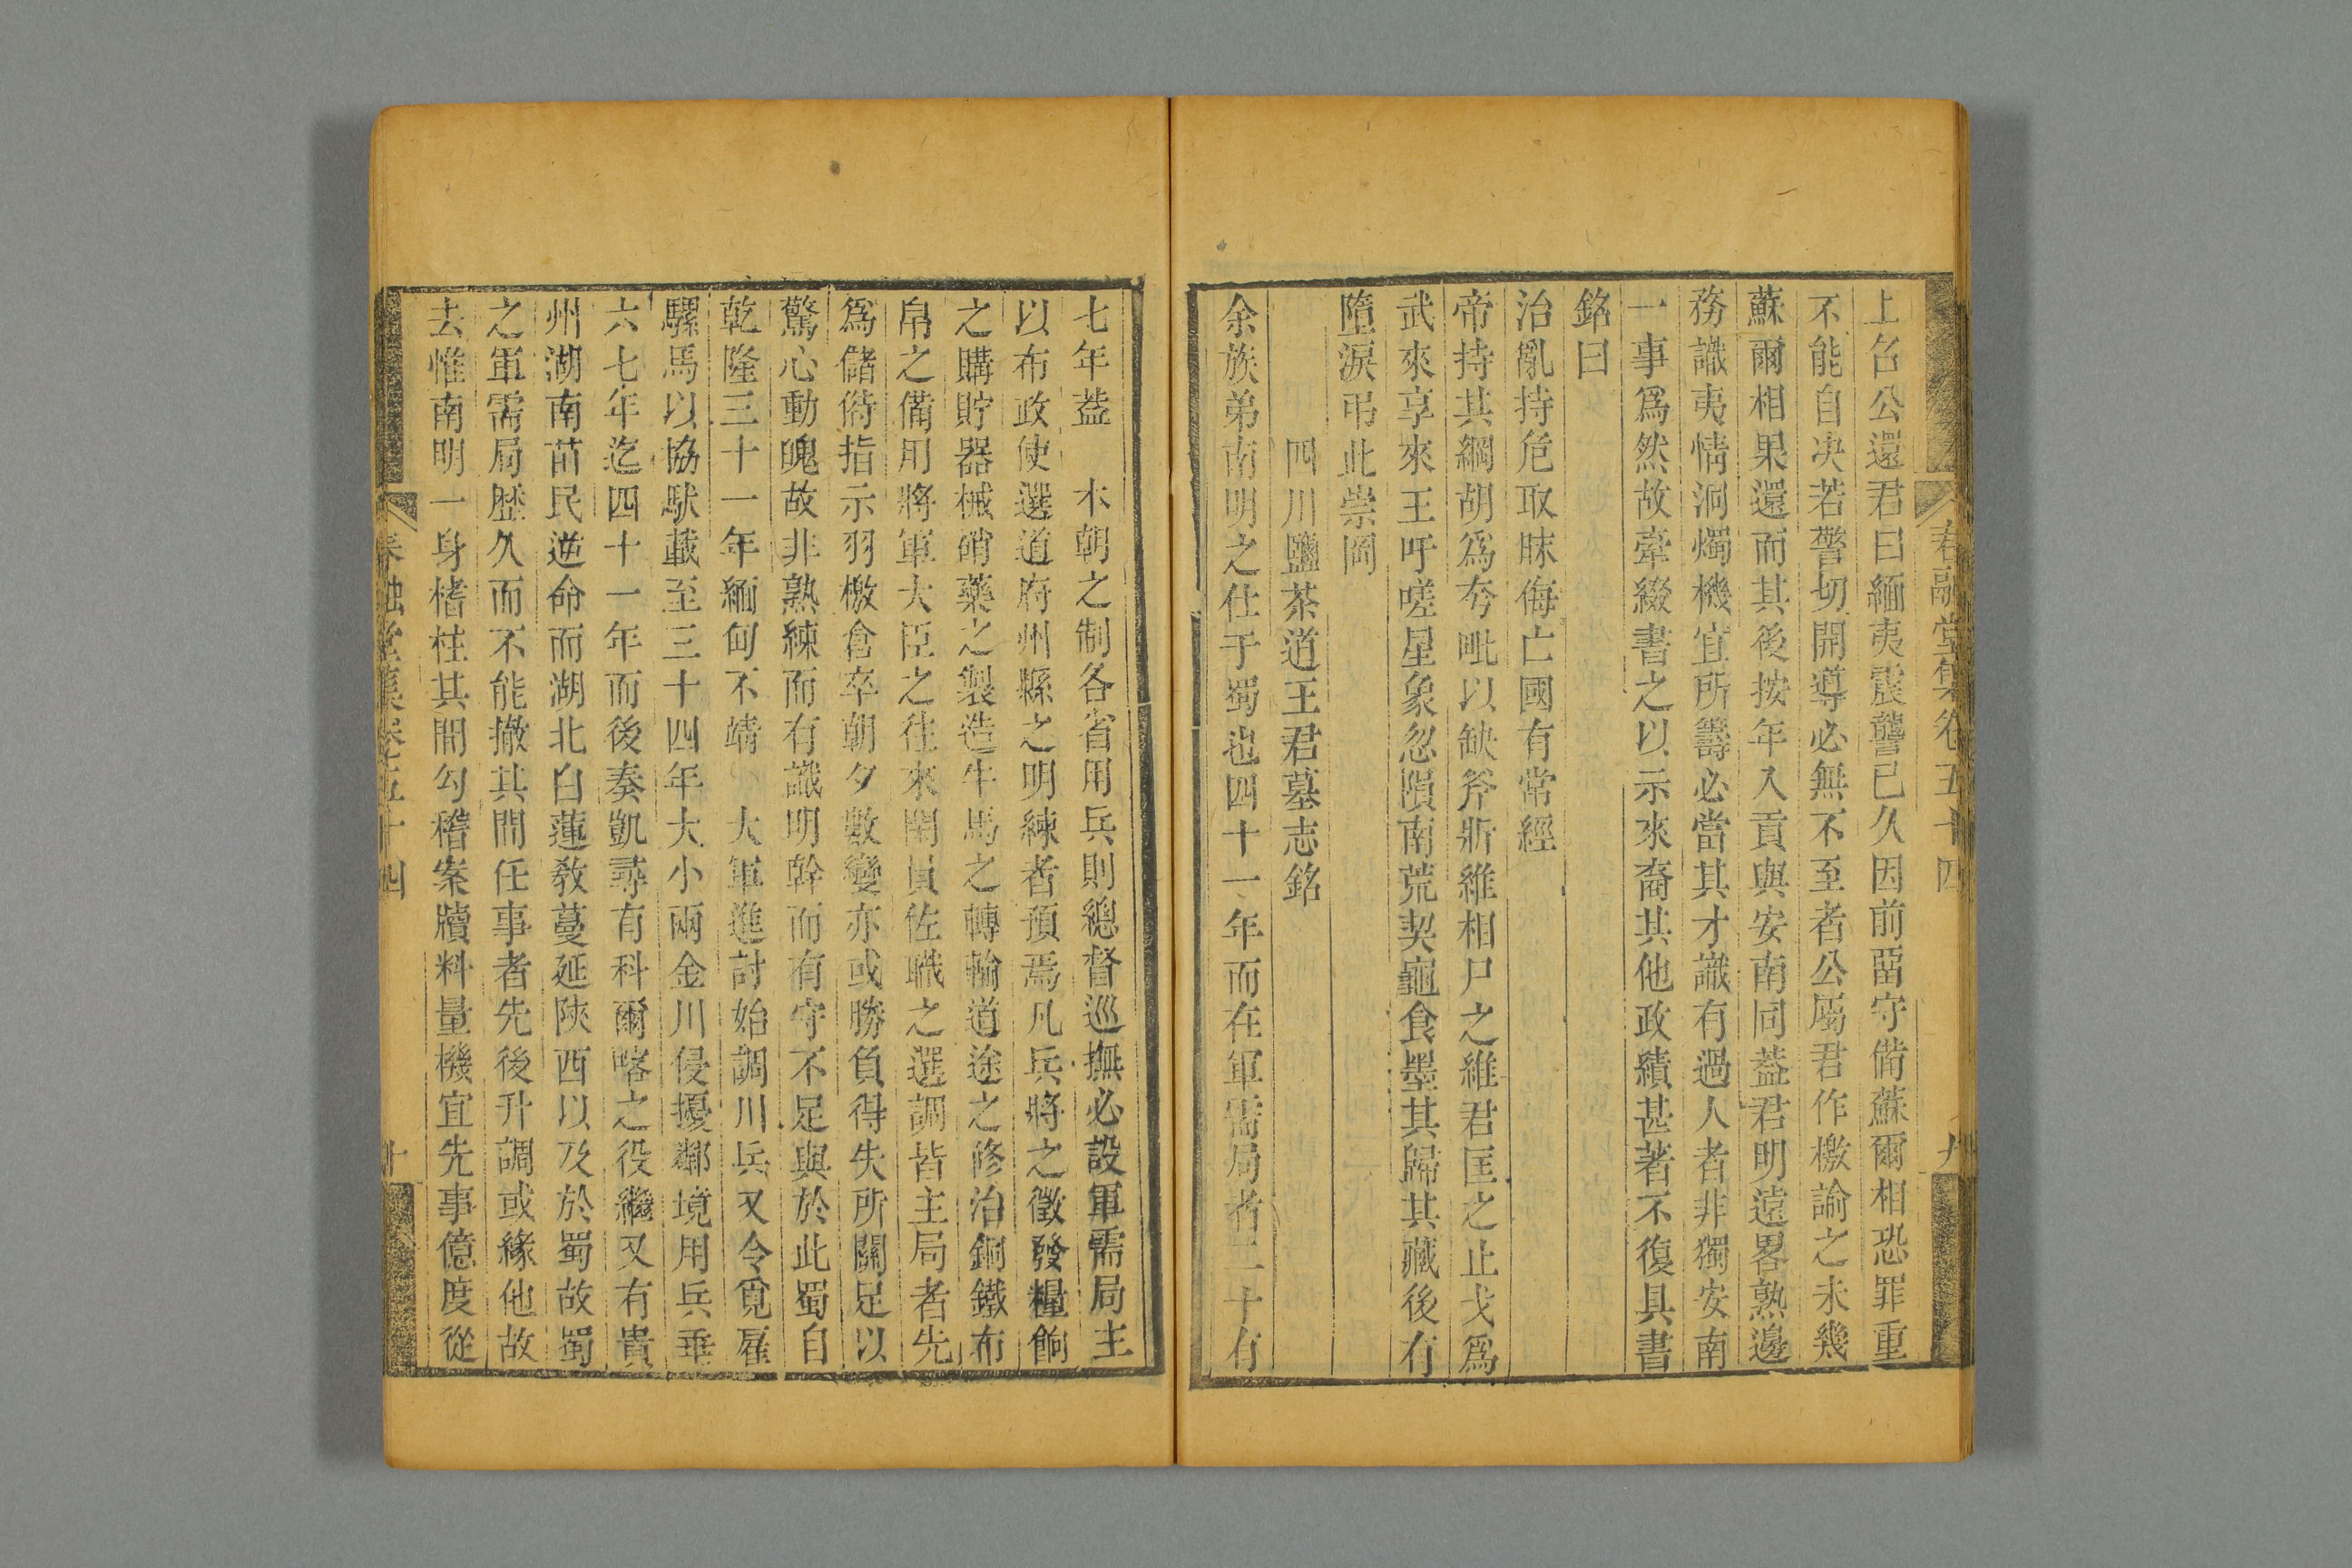 春融堂集卷五十四
九
上召公還君曰緬夷震讋已久因前畱守備蘇爾相恐罪重
不能自決若警切開導必無不至者公屬君作檄諭之未幾
蘇爾相果還而其後按年入貢與安南同葢君明遠畧熟邊
務識夷情洞燭機宜所籌必當其才識有過人者非獨安南
一事爲然故牽綴書之以示來裔其他政績甚著不復具書
銘曰
治亂持危取昧侮亡國有常經
帝持其綱胡爲夸毗以缺斧斨維相尸之維君匡之止戈爲
武來享來王吁嗟星象忽隕南荒契龜食墨其歸其藏後有
墮淚弔此崇岡
四川鹽茶道王君墓志銘
余族弟南明之仕于蜀也四十一年而在軍需局者二十有
七年葢 本朝之制各省用兵則總督巡撫必設軍需局主
以布政使選道府州縣之明練者預焉凡兵將之徵發糧餉
之購貯器械硝藥之製造牛馬之轉輸道途之修治銅鐵布
帛之備用將軍大臣之往來閒員佐職之選調皆主局者先
爲儲偫指示羽檄倉卒朝夕數變亦或勝負得失所關足以
驚心動魄故非熟練而有識明幹而有守不足與於此蜀自
乾隆三十一年緬甸不靖 大軍進討始調川兵又令覓雇
騾馬以協馱載至三十四年大小兩金川侵擾鄰境用兵垂
六七年迄四十一年而後奏凱尋有科爾喀之役繼又有貴
州湖南苗民逆命而湖北白蓮敎蔓延陝西以及於蜀故蜀
之軍需局歷久而不能撤其間任事者先後升調或緣他故
去惟南明一身楮柱其間勾稽案牘料量機宜先事億度從
春融堂集卷五十四
十